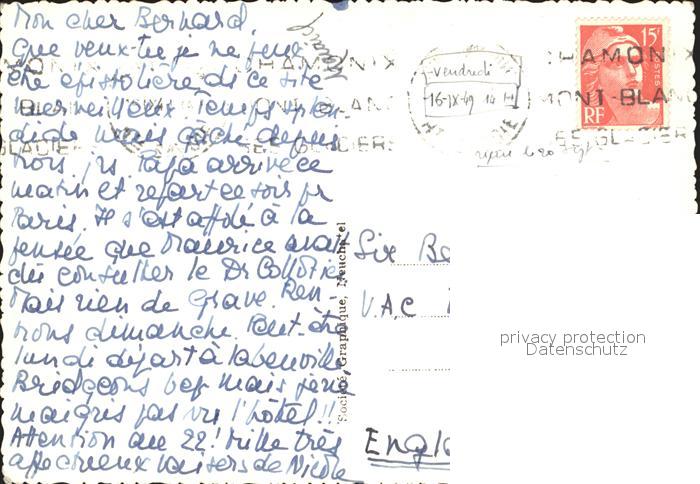 Mon cher Bernard,
Que veux-tu je ne peux
être épistolière de ce site
merveilleux. Temps splen-
dide mais gâché depuis
trois jrs. Papa arrive ce
matin et repart ce soir pr
Paris. Il s'est affolé à la
pensée que Maurice avait
dû consulter le Dr
Mais rien de grave. Ren-
trons dimanche. Peut-être
lundi départ à
Bridgeons bcp mais je ne
maigris pas vu l'hôtel!!
Attention au 22! Mille très
affectueux baisers de Nicole
France
CHAMONIX
MONT-BLANC
SES GLACIERS
Vendredi
16-IX-49 14 H
15F
POSTES
RF
CHAMONIX
MONT-BLANC
SES GLACIERS
Société Graphique, Neuchâtel
Six Be
V.A.C
Engla
privacy protection
Datenschutz